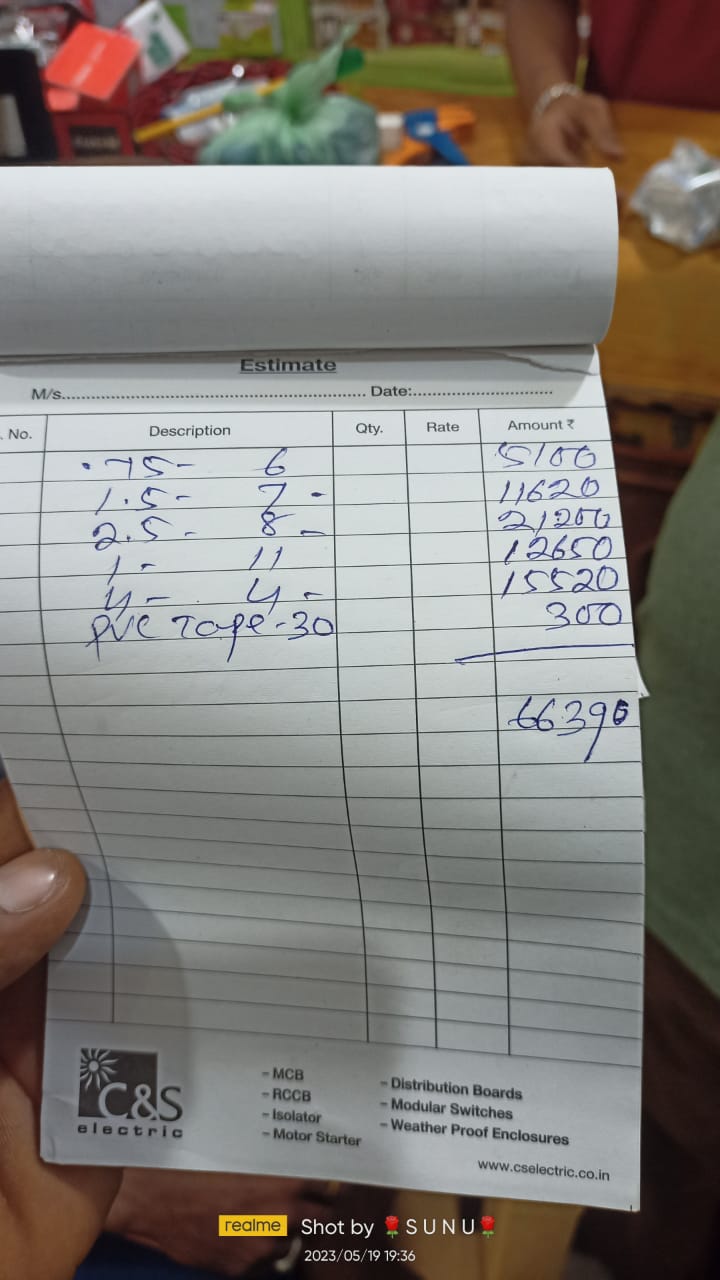 Estimate
M/s.................................................................. Date:..............................
. No. Description Qty. Rate Amount ₹
.75- 6 5100
1.5- 7 - 11620
2.5- 8 - 21200
1- 11 12650
4- 4- 15520
PVC Tape-30 300
66390
C&S
electric
- MCB
- RCCB
- Isolator
- Motor Starter
- Distribution Boards
- Modular Switches
- Weather Proof Enclosures
www.cselectric.co.in
realme Shot by 🌹S U N U🌹
2023/05/19 19:36